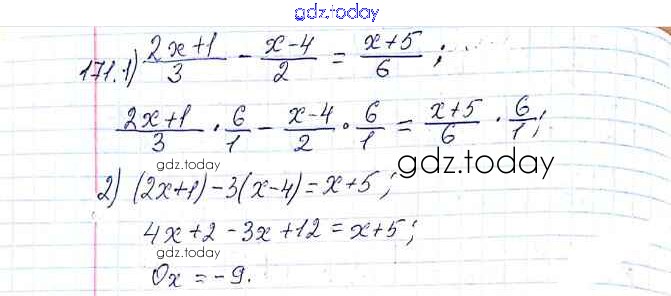 gdz.today
171. 1) (2x+1)/3 - (x-4)/2 = (x+5)/6 ;
(2x+1)/3 · 6/1 - (x-4)/2 · 6/1 = (x+5)/6 · 6/1 ;
gdz.today gdz.today
2) (2x+1)-3(x-4)=x+5 ;
4x+2-3x+12=x+5 ;
gdz.today
0x=-9.